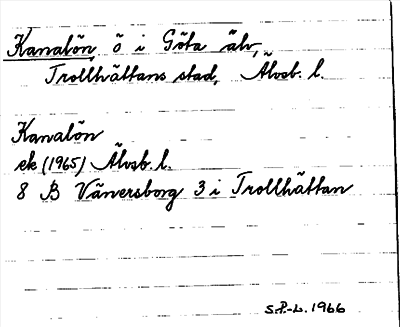 Kanalön, ö i Göta älv,
Trollhättans stad, Älvsb. l.
Kanalön
ek (1965) Älvsb. l.
8 B Vänersborg 3 i Trollhättan
S.P.-L. 1966